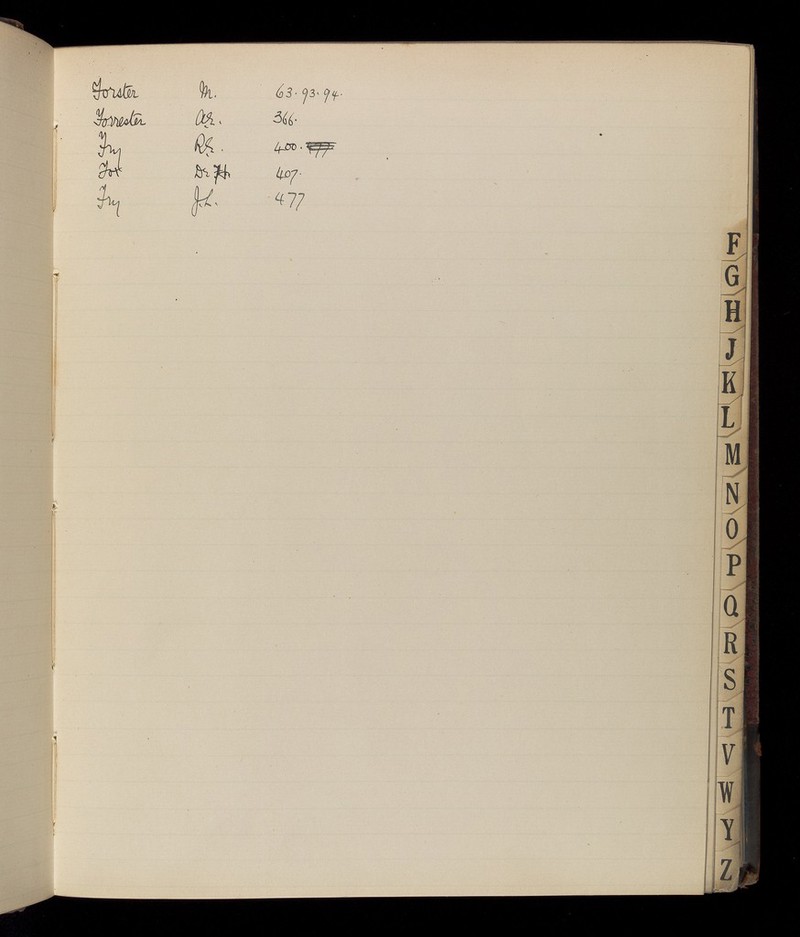 Forster M. 63. 93. 94.
Forrester A.E. 366.
Fry R.E. 400.
Fox Dr H. 407.
Fry J.L. 477
F
G
H
J
K
L
M
N
O
P
Q
R
S
T
V
W
Y
Z